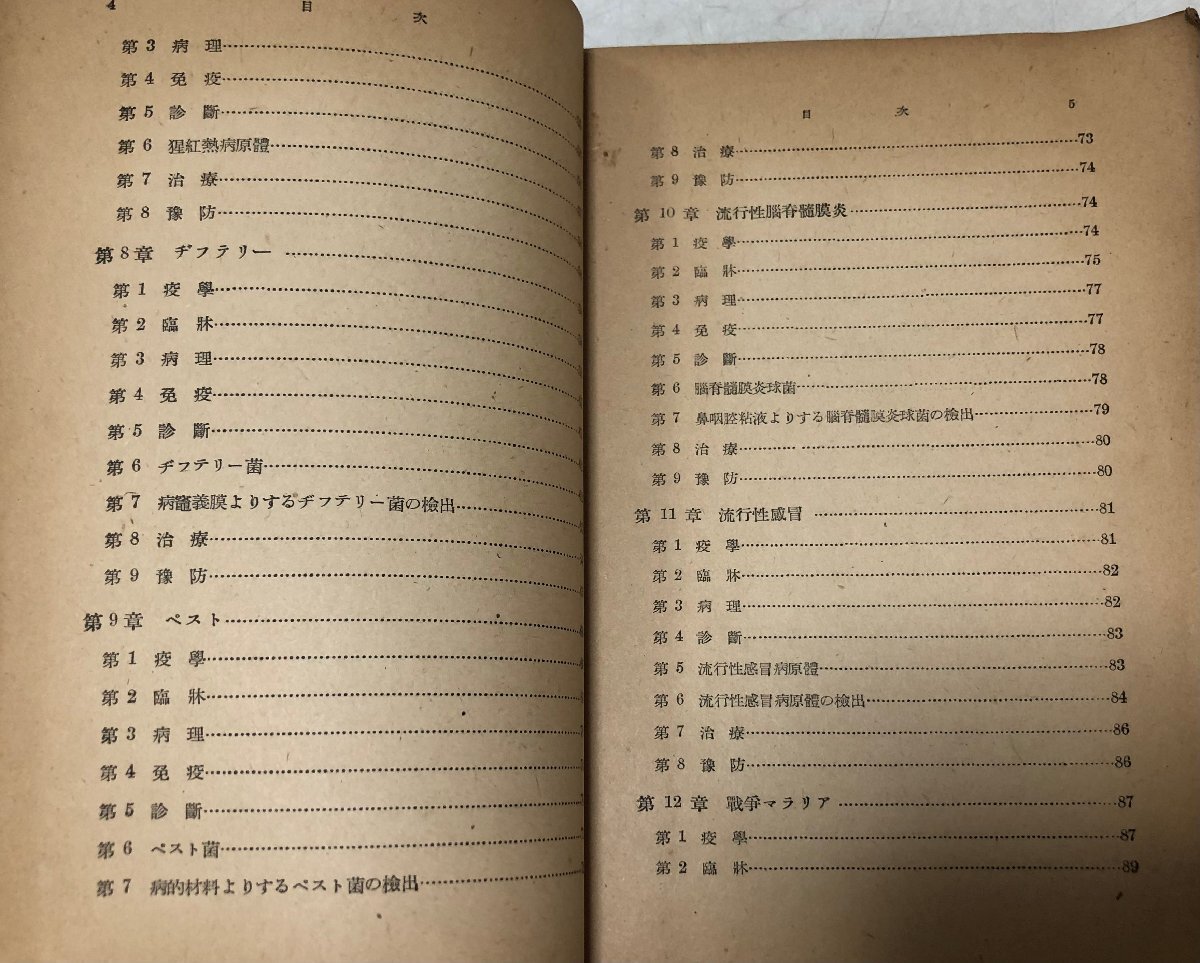 4 目次
第3 病理
第4 免疫
第5 診斷
第6 猩紅熱病原體
第7 治療
第8 豫防
第8章 ヂフテリー
第1 疫學
第2 臨牀
第3 病理
第4 免疫
第5 診斷
第6 ヂフテリー菌
第7 病竈義膜よりするヂフテリー菌の檢出
第8 治療
第9 豫防
第9章 ペスト
第1 疫學
第2 臨牀
第3 病理
第4 免疫
第5 診斷
第6 ペスト菌
第7 病的材料よりするペスト菌の檢出
目次 5
第8 治療 73
第9 豫防 74
第10章 流行性腦脊髓膜炎 74
第1 疫學 74
第2 臨牀 75
第3 病理 77
第4 免疫 77
第5 診斷 78
第6 腦脊髓膜炎球菌 78
第7 鼻咽腔粘液よりする腦脊髓膜炎球菌の檢出 79
第8 治療 80
第9 豫防 80
第11章 流行性感冒 81
第1 疫學 81
第2 臨牀 82
第3 病理 82
第4 診斷 83
第5 流行性感冒病原體 83
第6 流行性感冒病原體の檢出 84
第7 治療 86
第8 豫防 86
第12章 戰爭マラリア 87
第1 疫學 87
第2 臨牀 89